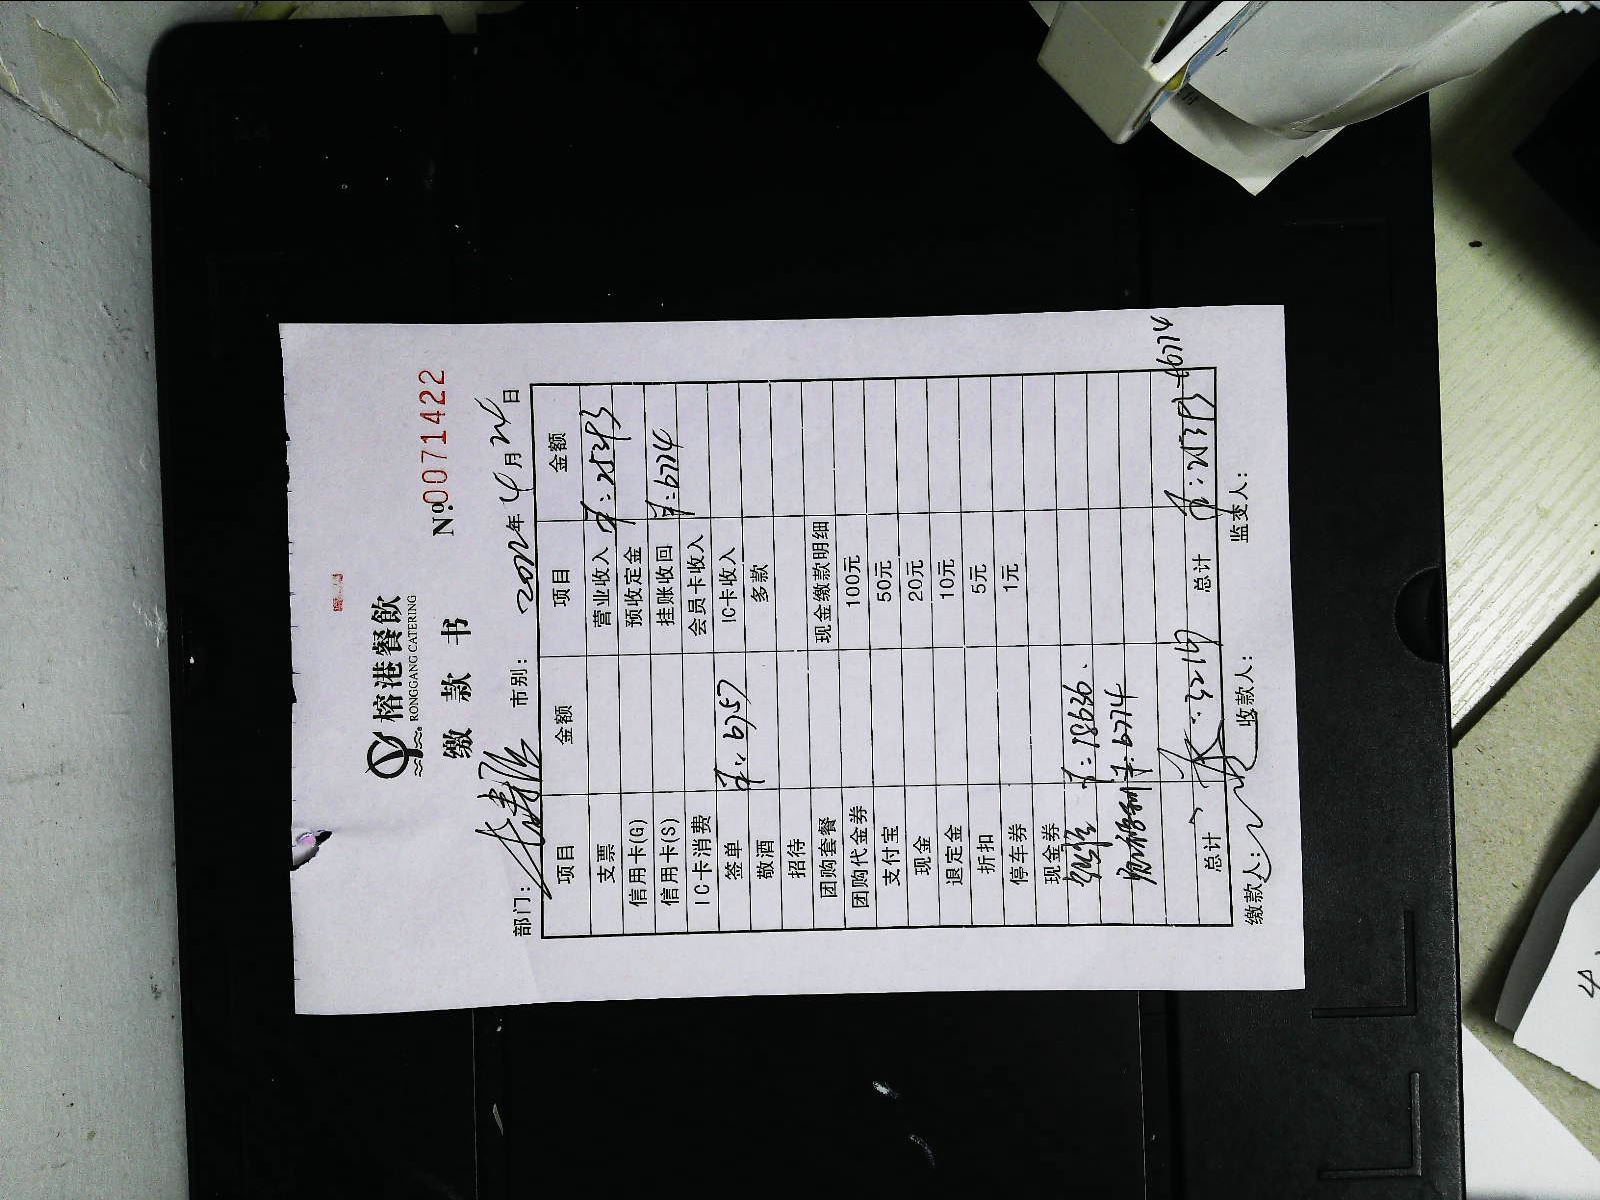 榕港餐飲
RONGGANG CATERING
缴 款 书
№0071422
部门： 市别： 2022年4月24日
项目 金额 项目 金额
支票 营业收入 平：25393
信用卡(G) 预收定金
信用卡(S) 挂账收回 平：6774
IC卡消费 会员卡收入
签单 平：6757 IC卡收入
敬酒 多款
招待
团购套餐 现金缴款明细
团购代金券 100元
支付宝 50元
现金 20元
退定金 10元
折扣 5元
停车券 1元
现金券
平：18636.
平：6774
总计 总计 平：25393+6774
缴款人： 收款人： 监交人：
4